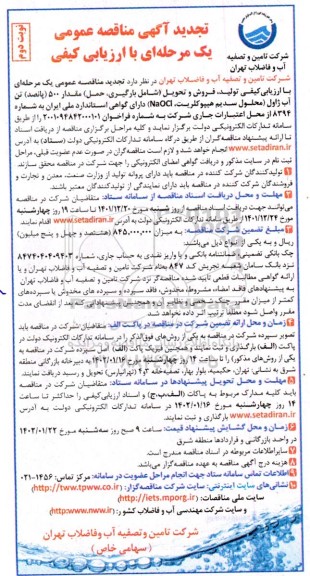 تجدید آگهی مناقصه عمومی
یک مرحله‌ای با ارزیابی کیفی
نوبت دوم
شرکت تامین و تصفیه
آب و فاضلاب تهران
شرکت تامین و تصفیه آب و فاضلاب تهران در نظر دارد تجدید مناقصه عمومی یک مرحله‌ای
با ارزیابی کیفی تولید، فروش و تحویل (شامل بارگیری، حمل) مقدار ۵۰۰ (پانصد) تن
آب ژاول (محلول سدیم هیپوکلریت، NaOCl) دارای گواهی استاندارد ملی ایران به شماره
۸۳۹۴ از محل اعتبارات جاری شرکت به شماره فراخوان ۲۰۰۱۰۹۴۸۴۲۰۰۰۱۰۱ را از طریق
سامانه تدارکات الکترونیکی دولت برگزار نماید و کلیه مراحل برگزاری مناقصه از دریافت اسناد
تا ارائه پیشنهاد مناقصه‌گران از طریق درگاه سامانه تدارکات الکترونیکی دولت (ستاد) به آدرس
www.setadiran.ir انجام خواهد شد و لازم است مناقصه‌گران در صورت عدم عضویت قبلی، مراحل
ثبت نام در سایت مذکور و دریافت گواهی امضای الکترونیکی را جهت شرکت در مناقصه محقق سازند.
۱ تولیدکنندگان شرکت کننده در مناقصه باید دارای پروانه تولید از وزارت صنعت، معدن و تجارت و
فروشندگان شرکت کننده در مناقصه باید دارای نمایندگی از تولیدکنندگان معتبر باشند.
۲ مهلت و محل دریافت اسناد مناقصه از سامانه ستاد: متقاضیان شرکت در مناقصه
می‌توانند جهت دریافت اسناد مناقصه از روز شنبه مورخ ۱۴۰۱/۱۲/۲۰ تا ساعت ۱۹ روز چهارشنبه
مورخ ۱۴۰۱/۱۲/۲۴ از طریق سامانه تدارکات الکترونیکی دولت به آدرس www.setadiran.ir اقدام نمایند.
۳ مبلغ تضمین شرکت در مناقصه: به میزان ۸۴۵,۰۰۰,۰۰۰ (هشتصد و چهل و پنج میلیون)
ریال و به یکی از انواع ذیل می‌باشد:
چک بانکی تضمینی، ضمانتنامه بانکی و یا واریز نقدی به حساب جاری، شماره ۸۴۷۴۰۴۰۴۰۹۴۰۳
نزد بانک سامان شعبه تجریش کد ۸۴۷ بنام شرکت تامین و تصفیه آب و فاضلاب تهران و یا
ارائه گواهی مطالبات قطعی تأیید شده مناقصه‌گر نزد شرکت تامین و تصفیه آب و فاضلاب تهران
به پیشنهادهای فاقد امضاء، مشروط، مخدوش، فاقد سپرده و سپرده های مخدوش یا سپرده‌های
کمتر از میزان مقرر، چک شخصی و نظایر آن و همچنین پیشنهاداتی که بعد از انقضای مدت
مقرر واصل شود مطلقاً ترتیب اثر داده نخواهد شد.
۴ زمان و محل ارائه تضمین شرکت در مناقصه در پاکت الف: متقاضیان شرکت در مناقصه باید
تصویر سپرده شرکت در مناقصه به یکی از روش‌های فوق‌الذکر را در سامانه تدارکات الکترونیک دولت در
پاکت (الف) بارگذاری و ثبت نمایند و همچنین فیزیک پاکت (الف) (اصل سپرده شرکت در مناقصه به
یکی از روش‌های مذکور) را تا ساعت ۱۴ روز چهارشنبه مورخ ۱۴۰۲/۰۱/۱۶ به دبیرخانه بازرگانی منطقه
شرق به نشانی: تهران، حکیمیه، بلوار بهار، تصفیه‌خانه ۳و۴ (تهرانپارس) تحویل و رسید دریافت نمایند.
۵ مهلت و محل تحویل پیشنهادها در سامانه ستاد: متقاضیان شرکت در مناقصه
باید کلیه مدارک مربوط به پاکات (الف،ب،ج) و اسناد ارزیابی کیفی را حداکثر تا ساعت
۱۴ روز چهارشنبه مورخ ۱۴۰۲/۰۱/۱۶ در سامانه تدارکات الکترونیکی دولت به آدرس
www.setadiran.ir بارگذاری و ثبت نمایند.
۶ زمان و محل گشایش پیشنهاد قیمت: ساعت ۹ صبح روز سه‌شنبه مورخ ۱۴۰۲/۰۱/۲۲
در واحد بازرگانی و قراردادها منطقه شرق
۷ سایر اطلاعات مربوطه در اسناد مناقصه مندرج است.
۸ هزینه درج آگهی مناقصه به عهده مناقصه‌گزار می‌باشد.
۹ اطلاعات تماس سامانه ستاد جهت انجام مراحل عضویت در سامانه: مرکز تماس: ۱۴۵۶-۰۲۱
۱۰ نشانی‌های سایت اینترنتی: سایت شرکت مناقصه‌گزار: (http://tww.tpww.co.ir)
سایت ملی مناقصات: (http://iets.mporg.ir)
و سایت شرکت مهندسی آب و فاضلاب کشور: (http:www.nww.ir)
شرکت تامین و تصفیه آب و فاضلاب تهران
(سهامی خاص)